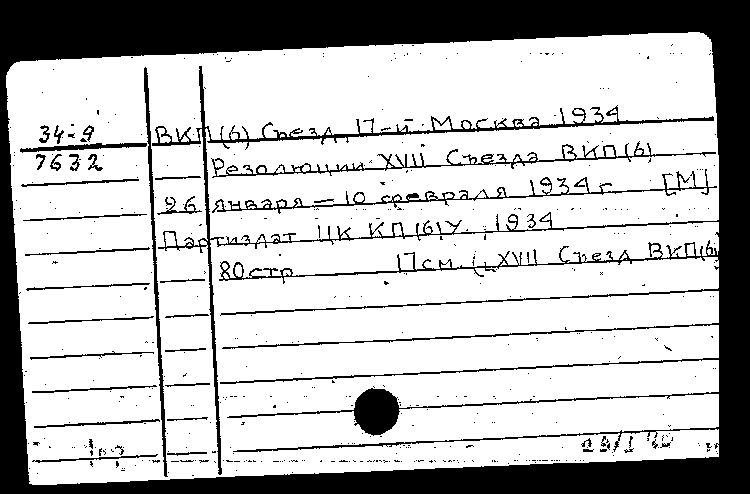 34-9 ВКП(б) Съезд, 17-й. Москва 1934
7632 Резолюции XVII Съезда ВКП(б)
26 января — 10 февраля 1934 г. [М]
Партиздат ЦК КП(б)У. 1934
80 стр 17 см. (XVII Съезд ВКП(б)